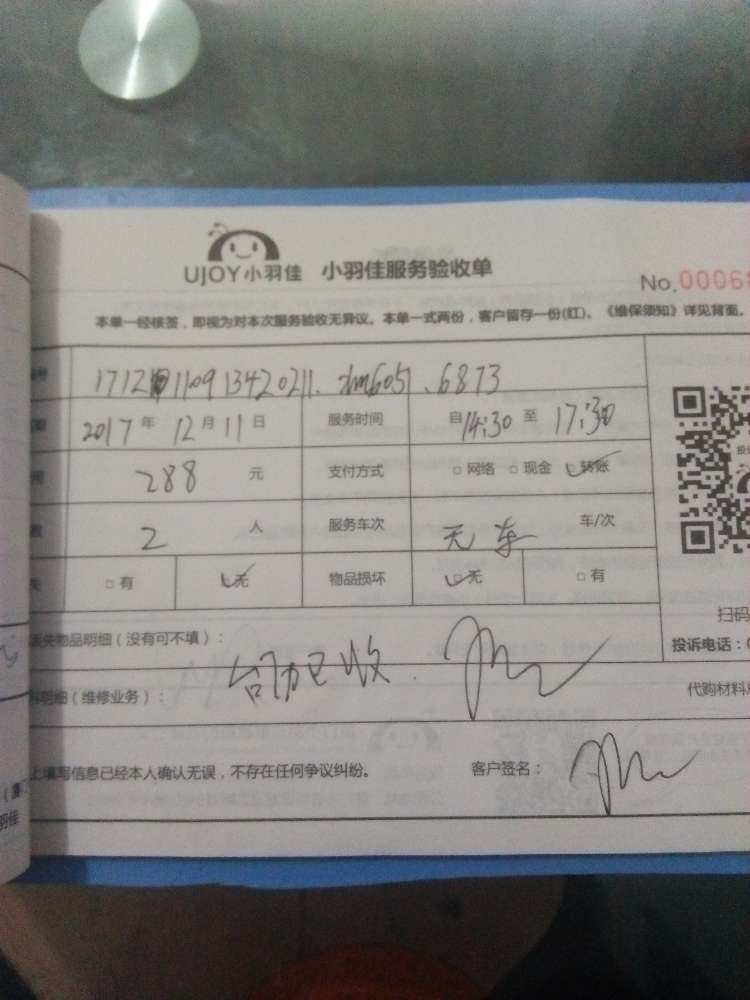 UJOY小羽佳 小羽佳服务验收单
No.00068
本单一经核签，即视为对本次服务验收无异议。本单一式两份，客户留存一份(红)。《维保须知》详见背面。
2017年12月11日 服务时间 自14:30至17:30
288元 支付方式 □网络 □现金 ☑转账
2人 服务车次 无车 车/次
□有 ☑无 物品损坏 ☑无 □有
扫码
丢失物品明细（没有可不填）： 投诉电话：0
已收
料明细（维修业务）： 代购材料
上填写信息已经本人确认无误，不存在任何争议纠纷。 客户签名：
羽佳